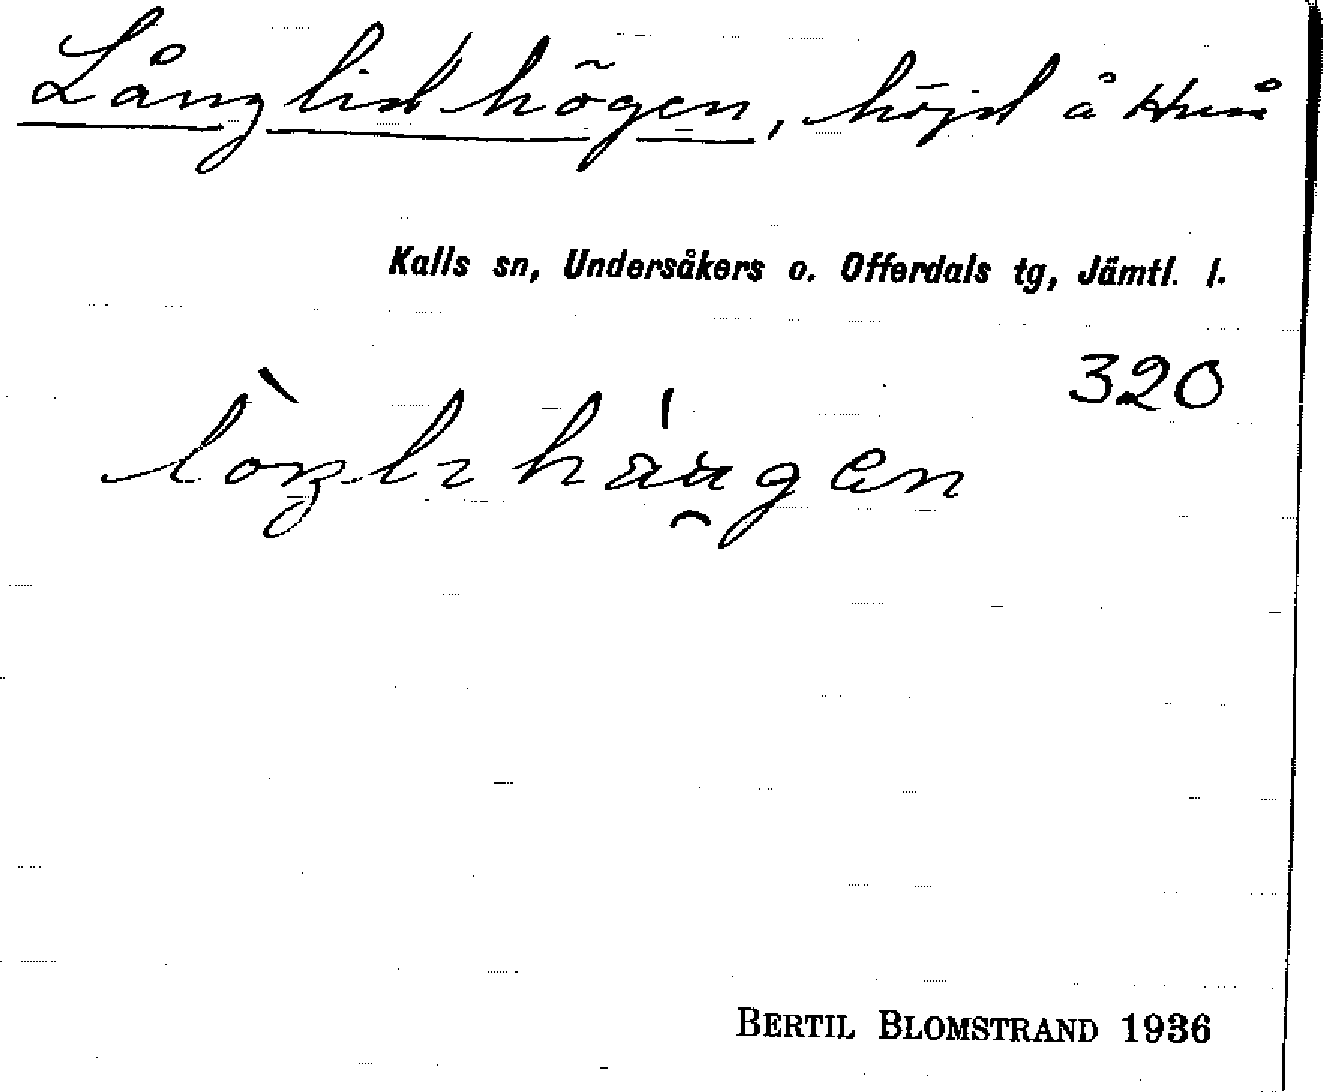 Långlidhögen, höjd å Huså
Kalls sn, Undersåkers o. Offerdals tg, Jämtl. l.
320
BERTIL BLOMSTRAND 1936